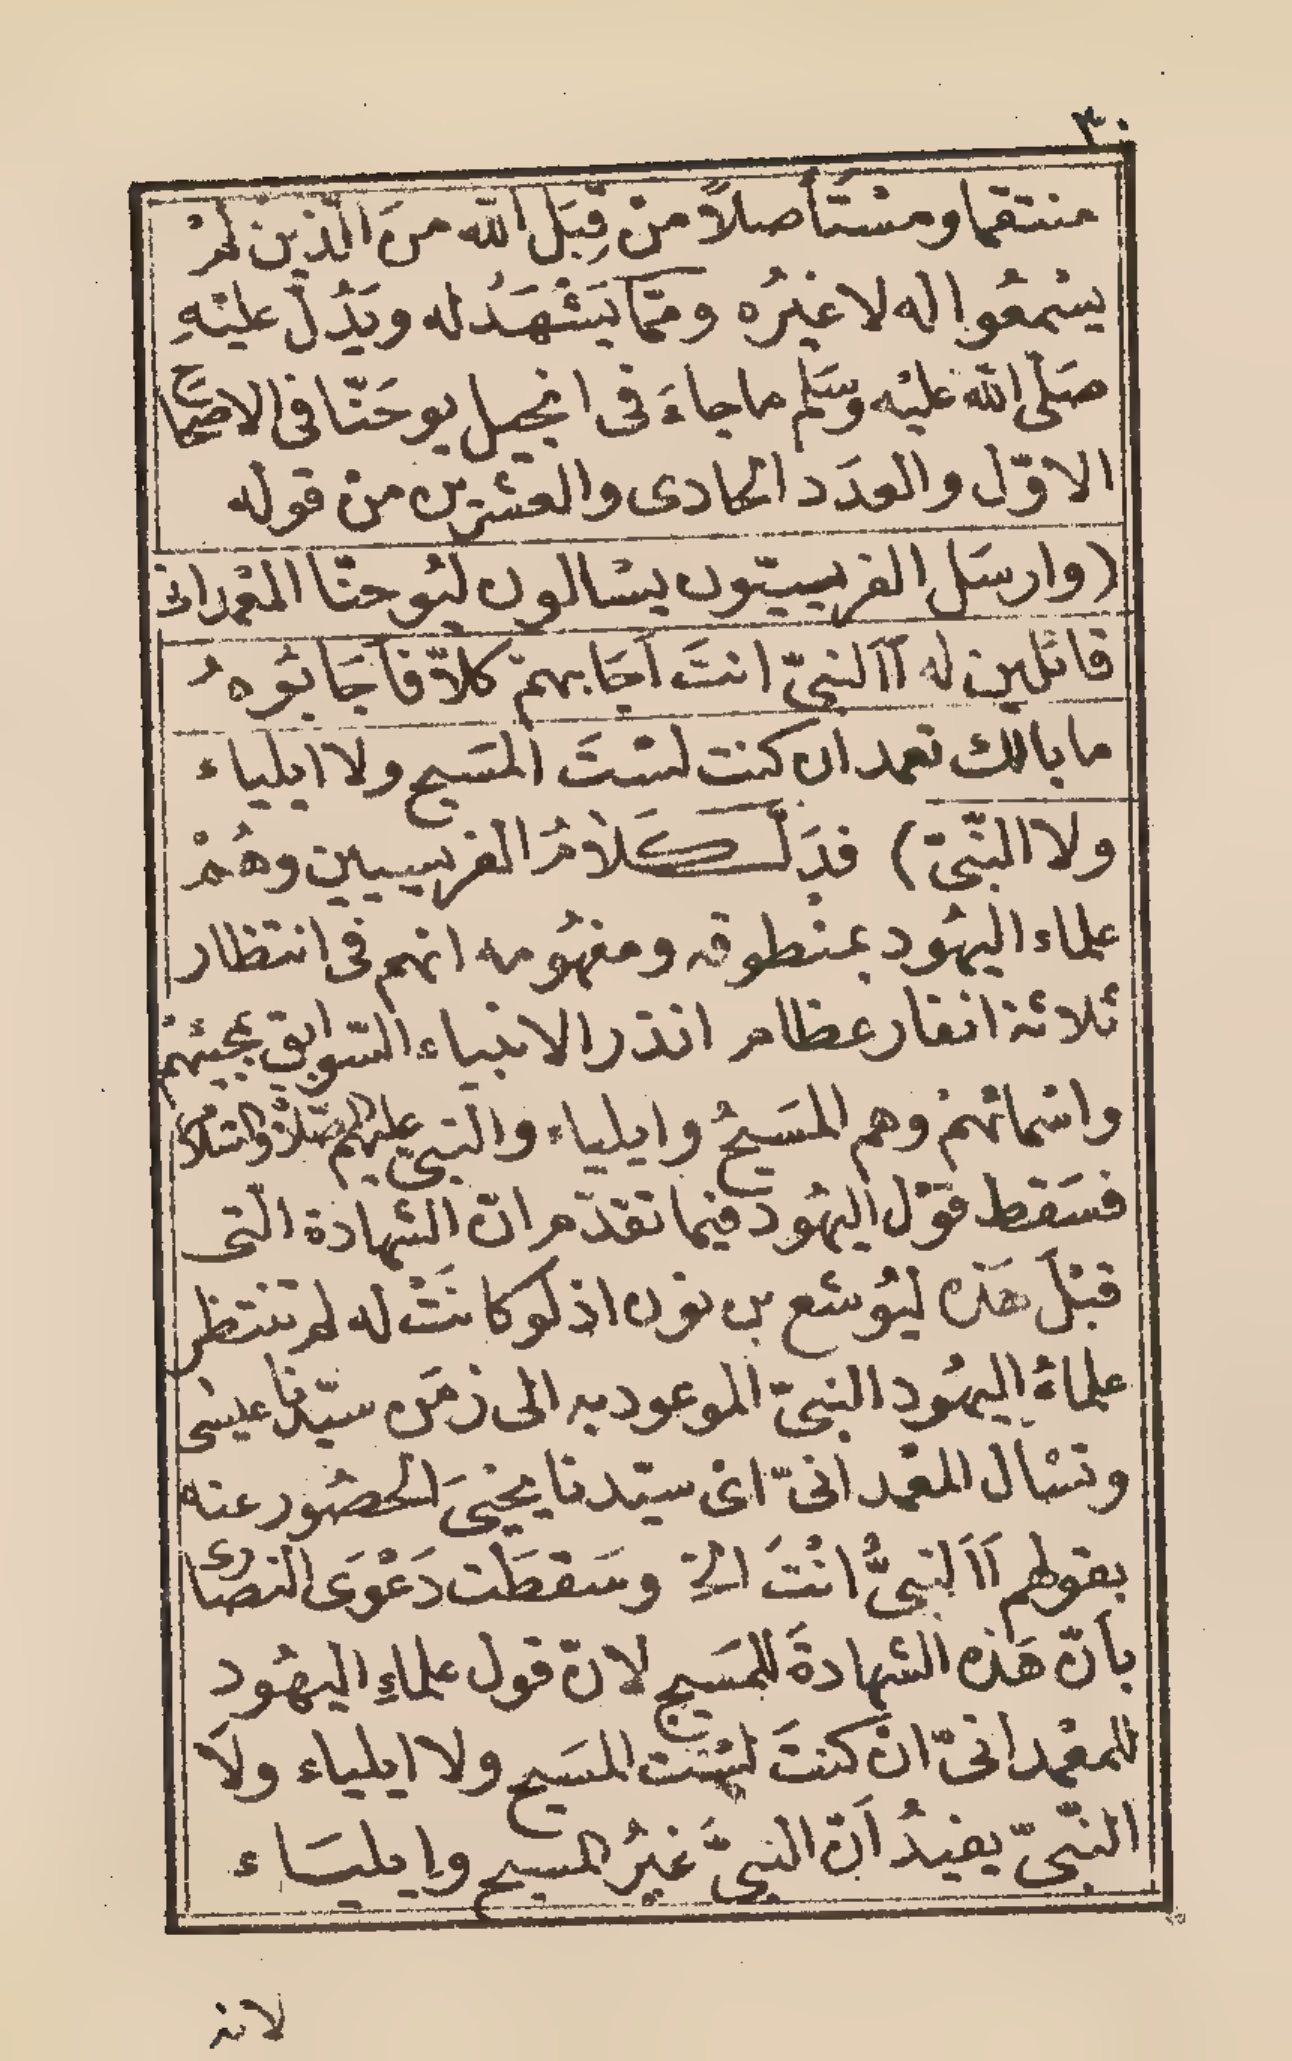 ٣٠
منتقما ومسْتَأصلاً منْ قِبَل الله منَ الّذين لمْ
يسْمعُوا له لا غيْرُه وممّا يَشْهَدُ له ويَدُلّ عليْهِ
صَلّى الله عليْه وسَلم ما جاءَ فى انجيل يوحَنّا فى الاصحاح
الاوّل والعدَد الحادى والعشرين منْ قوله
(وارسَل الفريسيّون يسْالون ليُوحنّا المعْمدانى
قائلين له آالنبىّ انتَ اَجَابهمْ كلاّ فاَجَابُوهُ
ما بالك تعمد ان كنت لسْتَ المسَيح ولا ايلياء
ولا النّبىّ) فدَلّ كَلامُ الفريسيين وهُمْ
علماء اليهُود بمنْطوقه ومفهُومه انهم فى انتظار
ثلاثة انفار عظام انذر الانبياء السّوابق بمجيئهمْ
واسْمائهمْ وهم المسَيحُ وايلياء والنبى عليهم الصّلاة والسّلام
فسَقط قوْل اليهُود فيما تقدّم انّ الشهادة الّتى
قبْلَ هَذه ليُوشع بن نون اذ لو كانَتْ له لم تنتظر
علماءُ اليهُود النبىّ الموعود به الى زمَن سيّدنا عيسٰى
وتسْال المعْمدانىّ اىْ سيّدنا يحْيىَ الحصُور عنه
بقولهم اَاَلنبىُّ انْتَ الخ وسَقطَت دَعْوَى النصَارى
بانّ هَذه الشهادةَ للمسَيح لانّ قول علماءِ اليهُود
للمعْمدانىّ انْ كنتَ لسْت المسَيح ولا ايلياء ولاَ
النّبىّ يفيدُ اَنّ النبىَّ غيْرُ المسيح وايليَاء
لانه